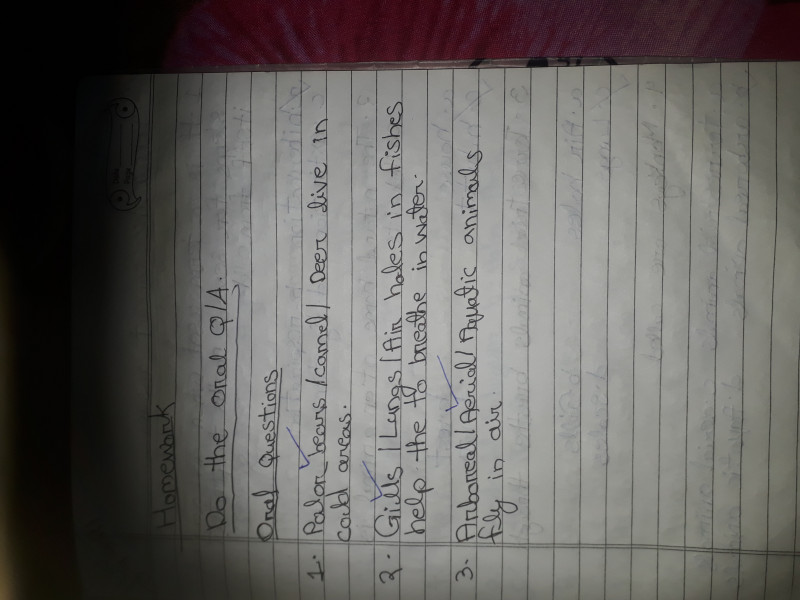 Homework
Do the oral Q/A.
Oral Questions
1. Palor bears / camel / Deer live in
cold areas.
2. Gills / Lungs / Air holes in fishes
help the to breathe in water.
3. Arboreal / Aerial / Aquatic animals
fly in air.